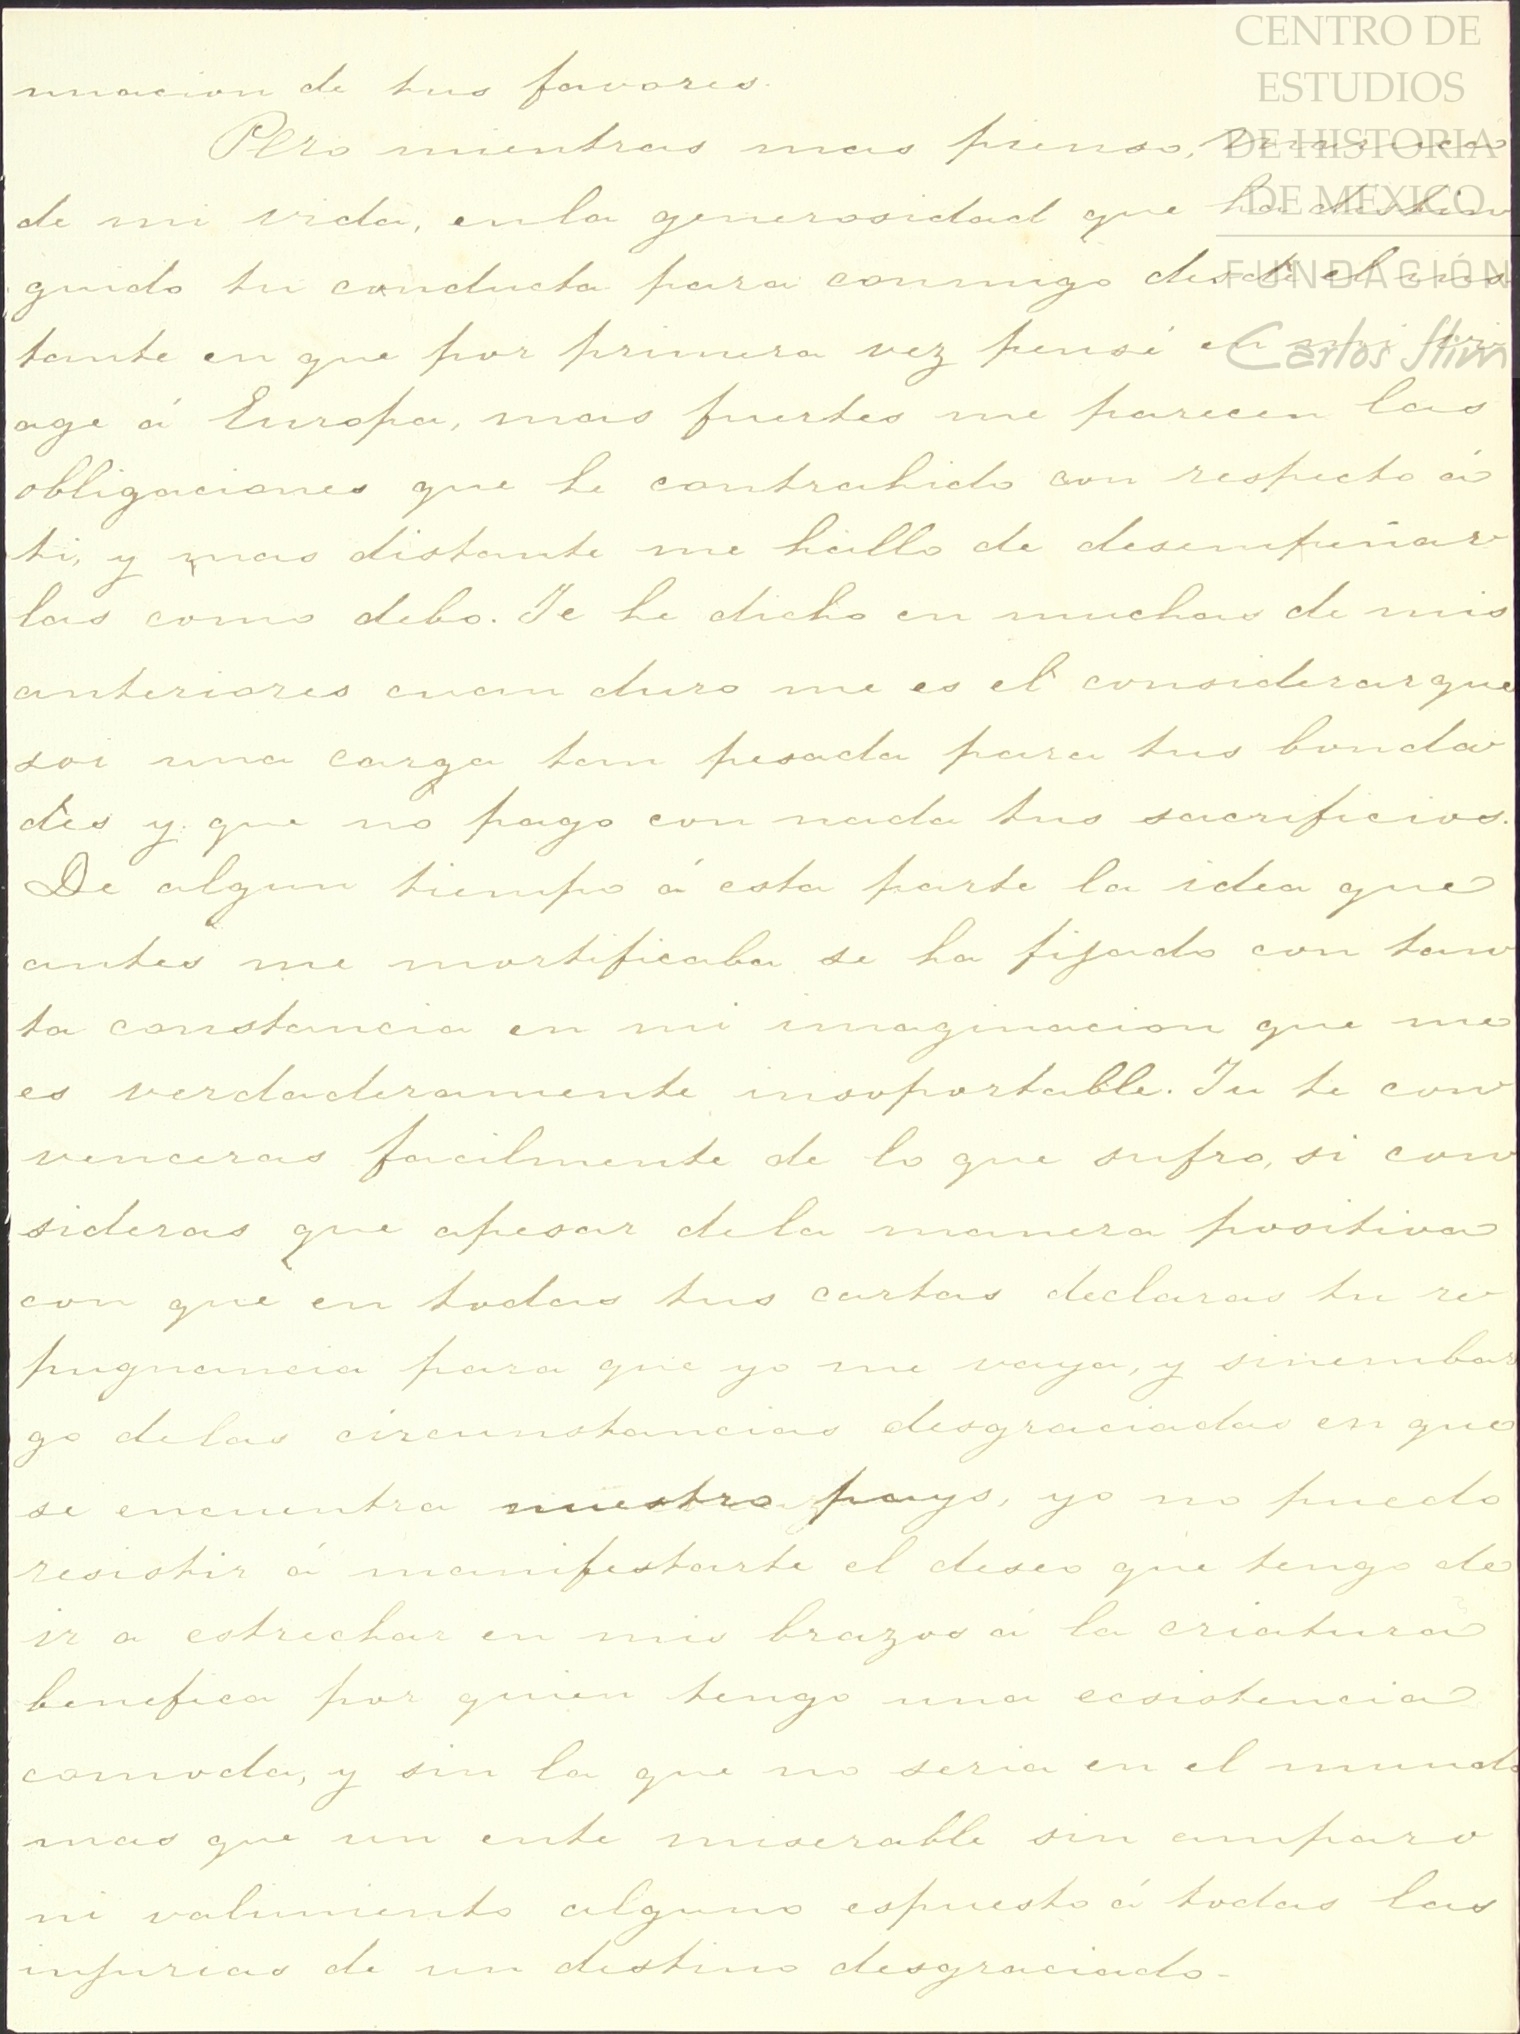 CENTRO DE
ESTUDIOS
DE HISTORIA
DE MEXICO
FUNDACIÓN
Carlos Slim
nuacion de tus favores.
Pero mientras mas pienso,
de mi vida, enla generosidad que ha distin
guido tu conducta para conmigo desde el ins
tante en que por primera vez pensé en mi vi
age á Europa, mas fuertes me parecen las
obligaciones que he contrahido con respecto á
ti, y mas distante me hallo de desempeñar
las como debo. Te he dicho en muchas de mis
anteriores cuan duro me es el considerar que
soi una carga tan pesada para tus bonda
des y que no pago con nada tus sacrificios.
De algun tiempo á esta parte la idea que
antes me mortificaba se ha fijado con tan
ta constancia en mi imaginacion que me
es verdaderamente insoportable. Tu te con
venceras facilmente de lo que sufro, si con
sideras que apesar dela manera positiva
con que en todas tus cartas declaras tu re
pugnancia para que yo me vaya, y sinembar
go delas circunstancias desgraciadas en que
se encuentra nuestro pays, yo no puedo
resistir á manifestarte el deseo que tengo de
ir a estrechar en mis brazos á la criatura
benefica por quien tengo una ecsistencia
comoda, y sin la que no seria en el mundo
mas que un ente miserable sin amparo
ni valimiento alguno espuesto á todas las
injurias de un destino desgraciado-